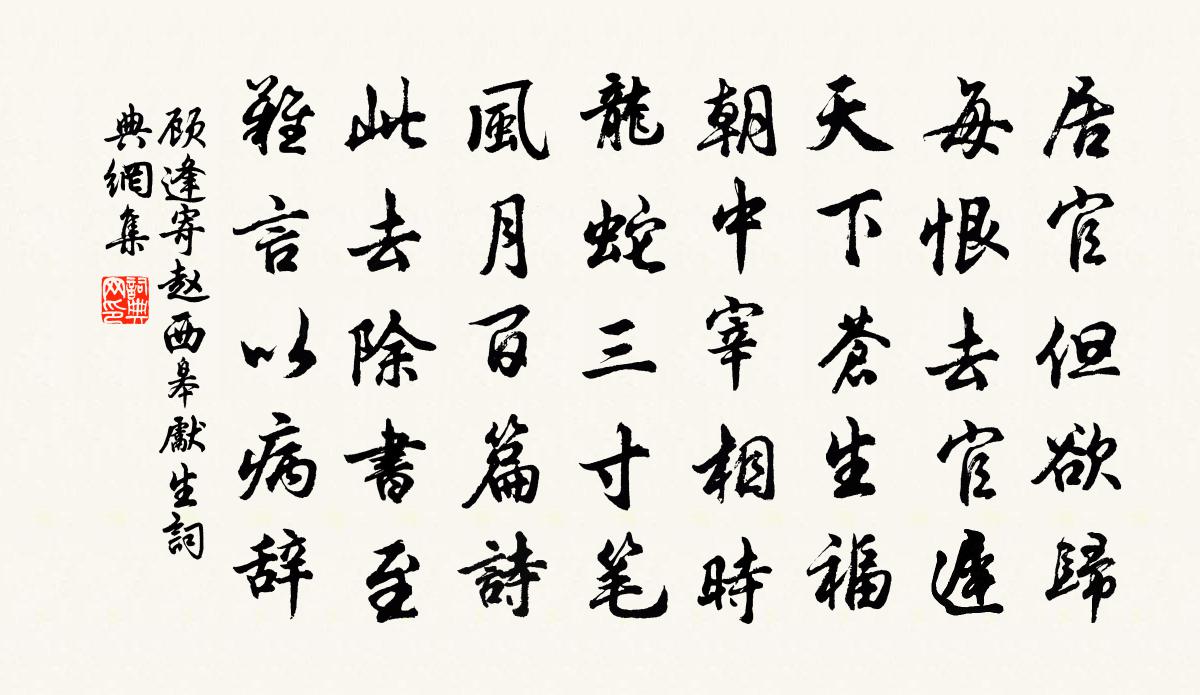 居官但欲歸
每恨去官遲
天下蒼生福
朝中宰相時
龍蛇三寸笔
風月百篇詩
此去除書至
難言以病辞
顾逢寄赵西皋獻生詞
典網集
詞典
网印